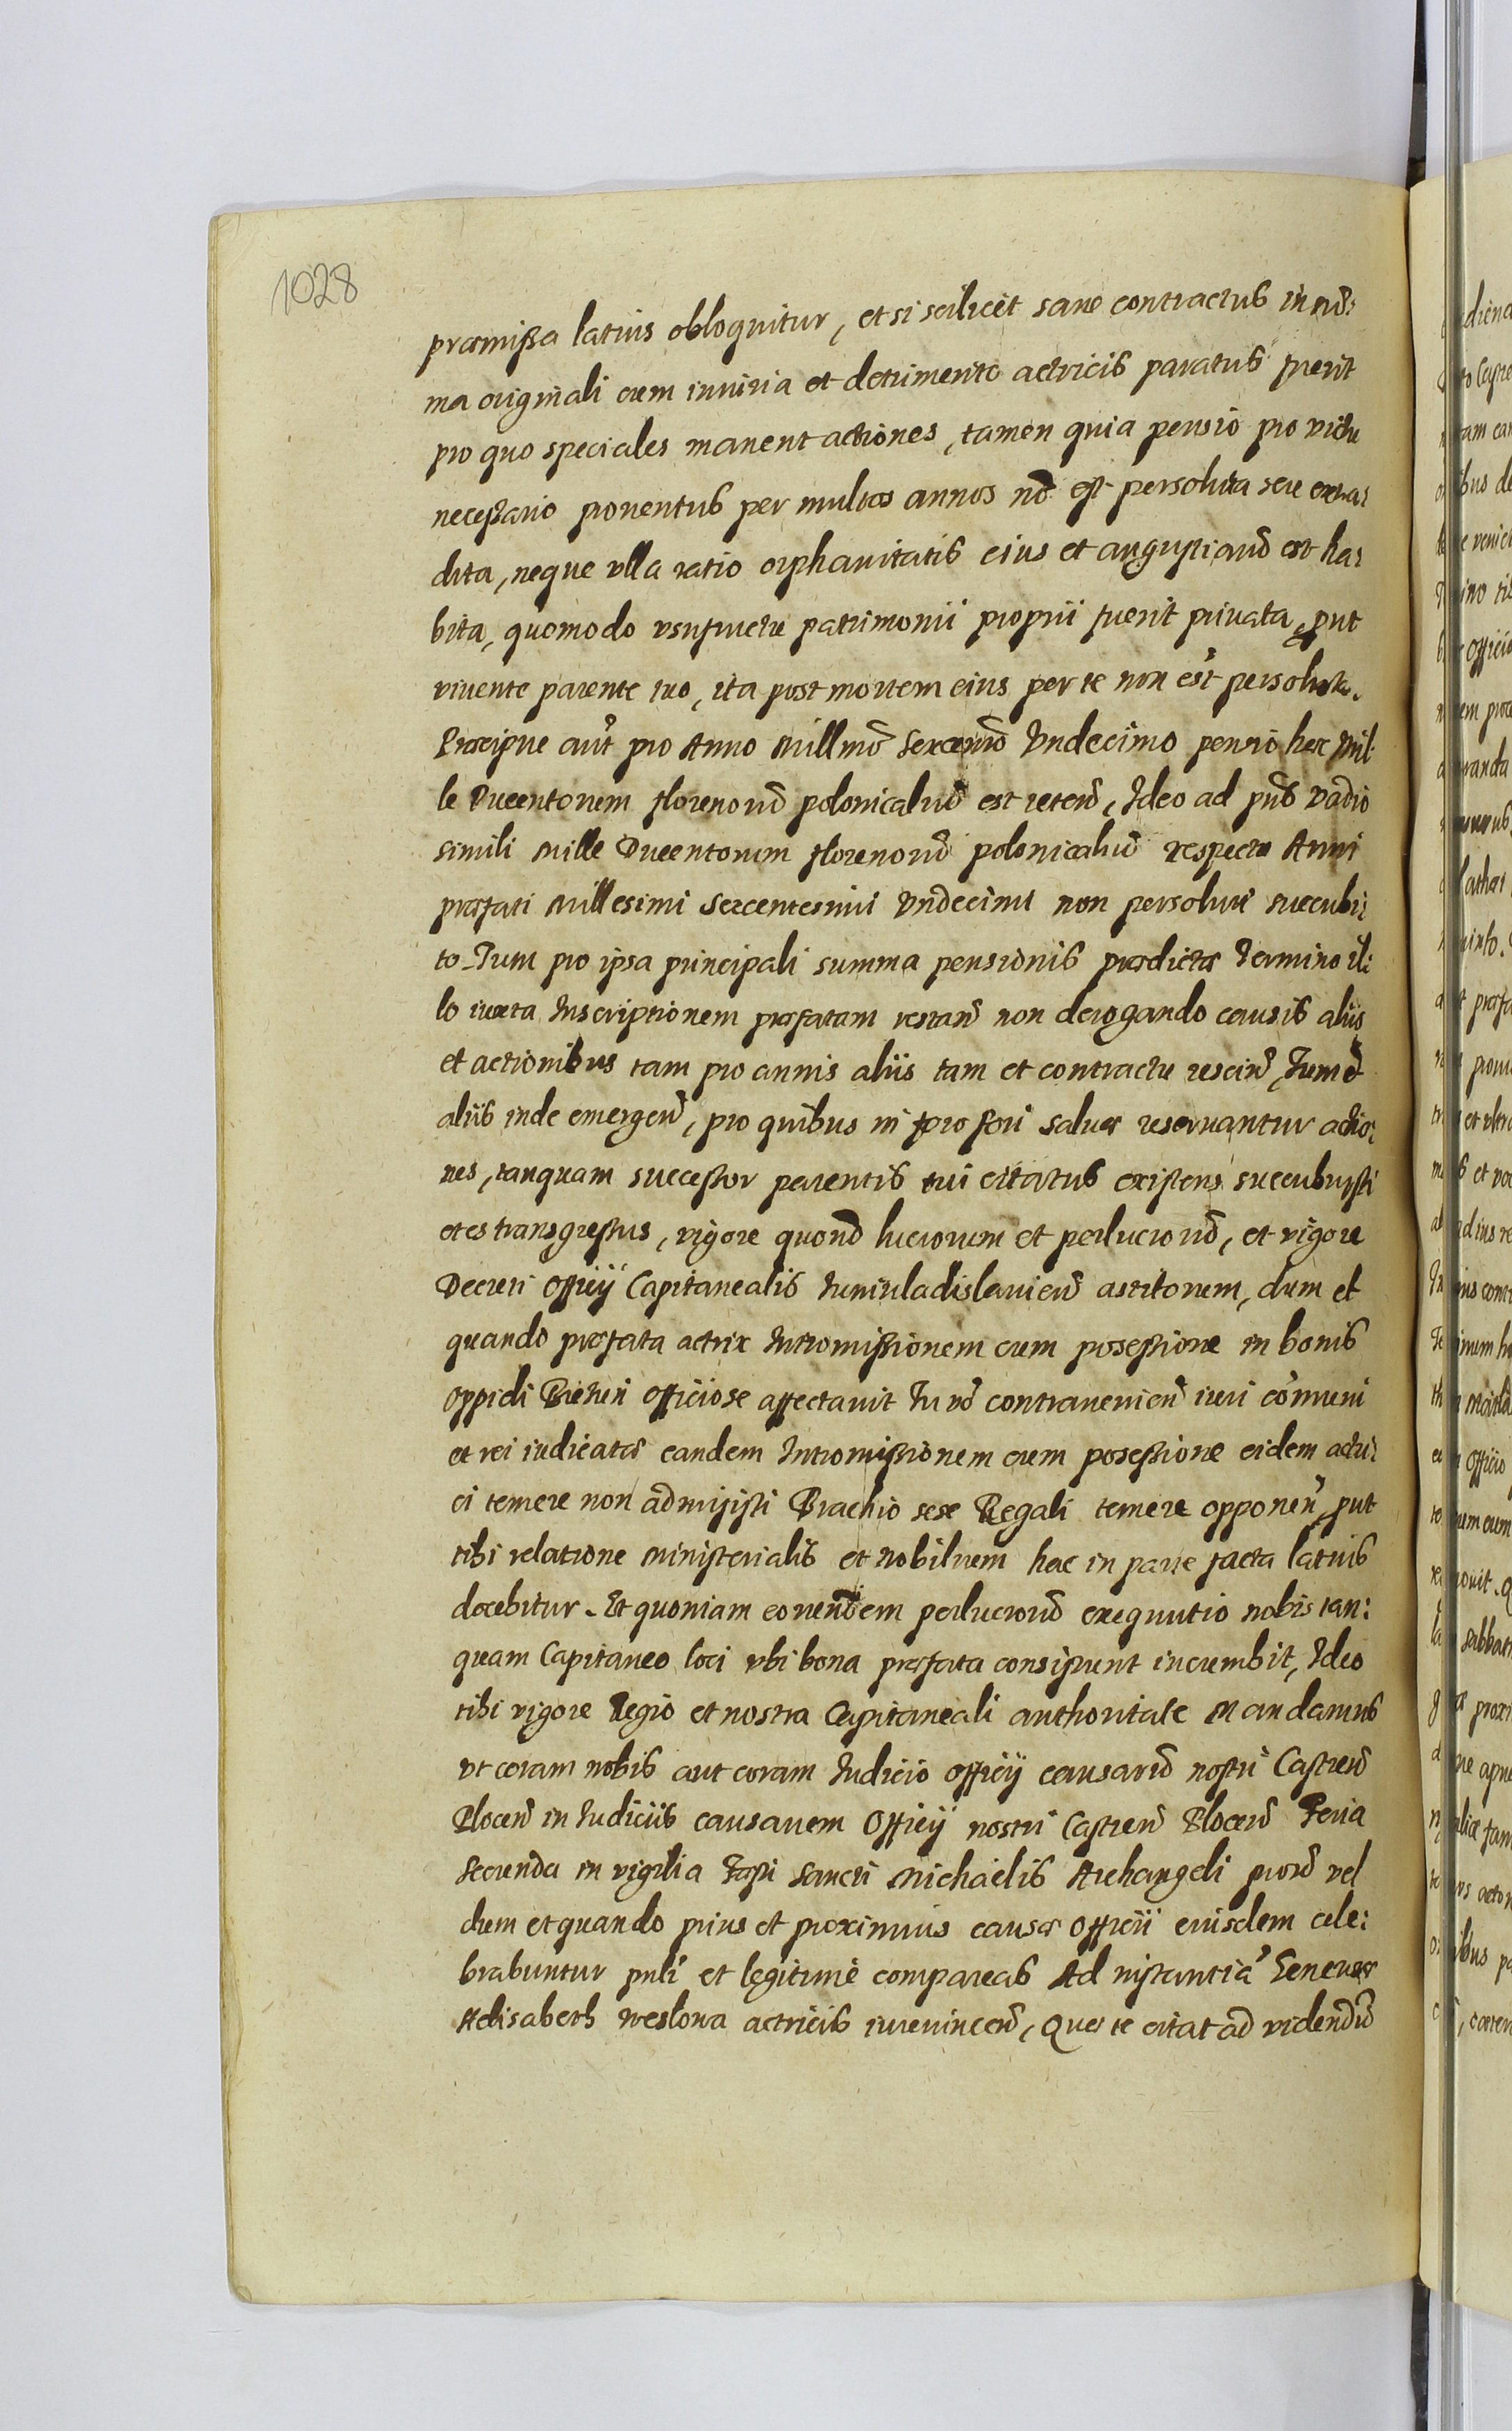 1028
præmissa latius obloquitur, et si scilicet sane contractus in sum:
ma originali cum iniuria et detrimento actricis paratus fuerit
pro quo speciales manent actiones, tamen quia pensio pro victu
necessario prouentus per multos annos nō est persoluta seu extra:
dita, neque vlla ratio orphanitatis eius et angustiarū est ha:
bita, quomodo vsufructu patrimonii proprii fuerit priuata, put
viuente parente tuo, ita post mortem eius per te non est persoluta.
Præcipue aūt pro Anno Millmō Sexcentmō Vndecimo pensio hæc Mil:
le Ducentorum florenorū polonicaliū est retenō, Ideo ad pns vadio
simili Mille Ducentorum florenorū polonicaliū respectu Anni
præfati Millesimi Sexcentesimi Vndecimi non persoluti succubi:
to. Tum pro ipsa principali summa pensionis prædictæ Termino il:
lo iuxta Inscriptionem præfatam restanō non derogando causis aliis
et actionibus tam pro annis aliis tam et contractu rescinō, Tum ō
aliis inde emergenō, pro quibus in foro fori saluæ reseruantur actio:
nes, tanquam successor parentis tui citatus existens succubuisti
et es transgressus, vigore quorō lucrorum et perlucrorū, et vigore
Decreti Officÿ Capitanealis Iuniuladislauienō ascitorum, dum et
quando præfata actrix Intromissionem cum possessione in bonis
oppidi officiose affectauit Tu vō contrauenienō iuri cōmuni
et rei iudicatæ eandem Intromissionem cum possessione eidem actri:
ci temere non admisisti Brachio sese Regali temere opponenō, put
tibi relatione Ministerialis et Nobilium hac in parte facta latius
docebitur. Et quoniam eorundem perlucrorū exequutio nobis tan:
quam Capitaneo loci vbi bona præfata consistunt incumbit, Ideo
tibi vigore Regio et nostra Capitaneali authoritate Mandamus
vt coram nobis aut coram Iudicio Officÿ causarū nostri Castrenō
Plocenō in Iudiciis causarum Officÿ nostri Castrenō Plocenō Feria
Secunda in vigilia Festi Sancti Michaëlis Archangeli proxō vel
dum et quando prius et proximius causæ Officii eiusdem cele:
brabuntur pnlr et legitimè compareas Ad instantiā Generosæ
Elisabeth actricis iureuincenō, Quæ te citat ad videndū